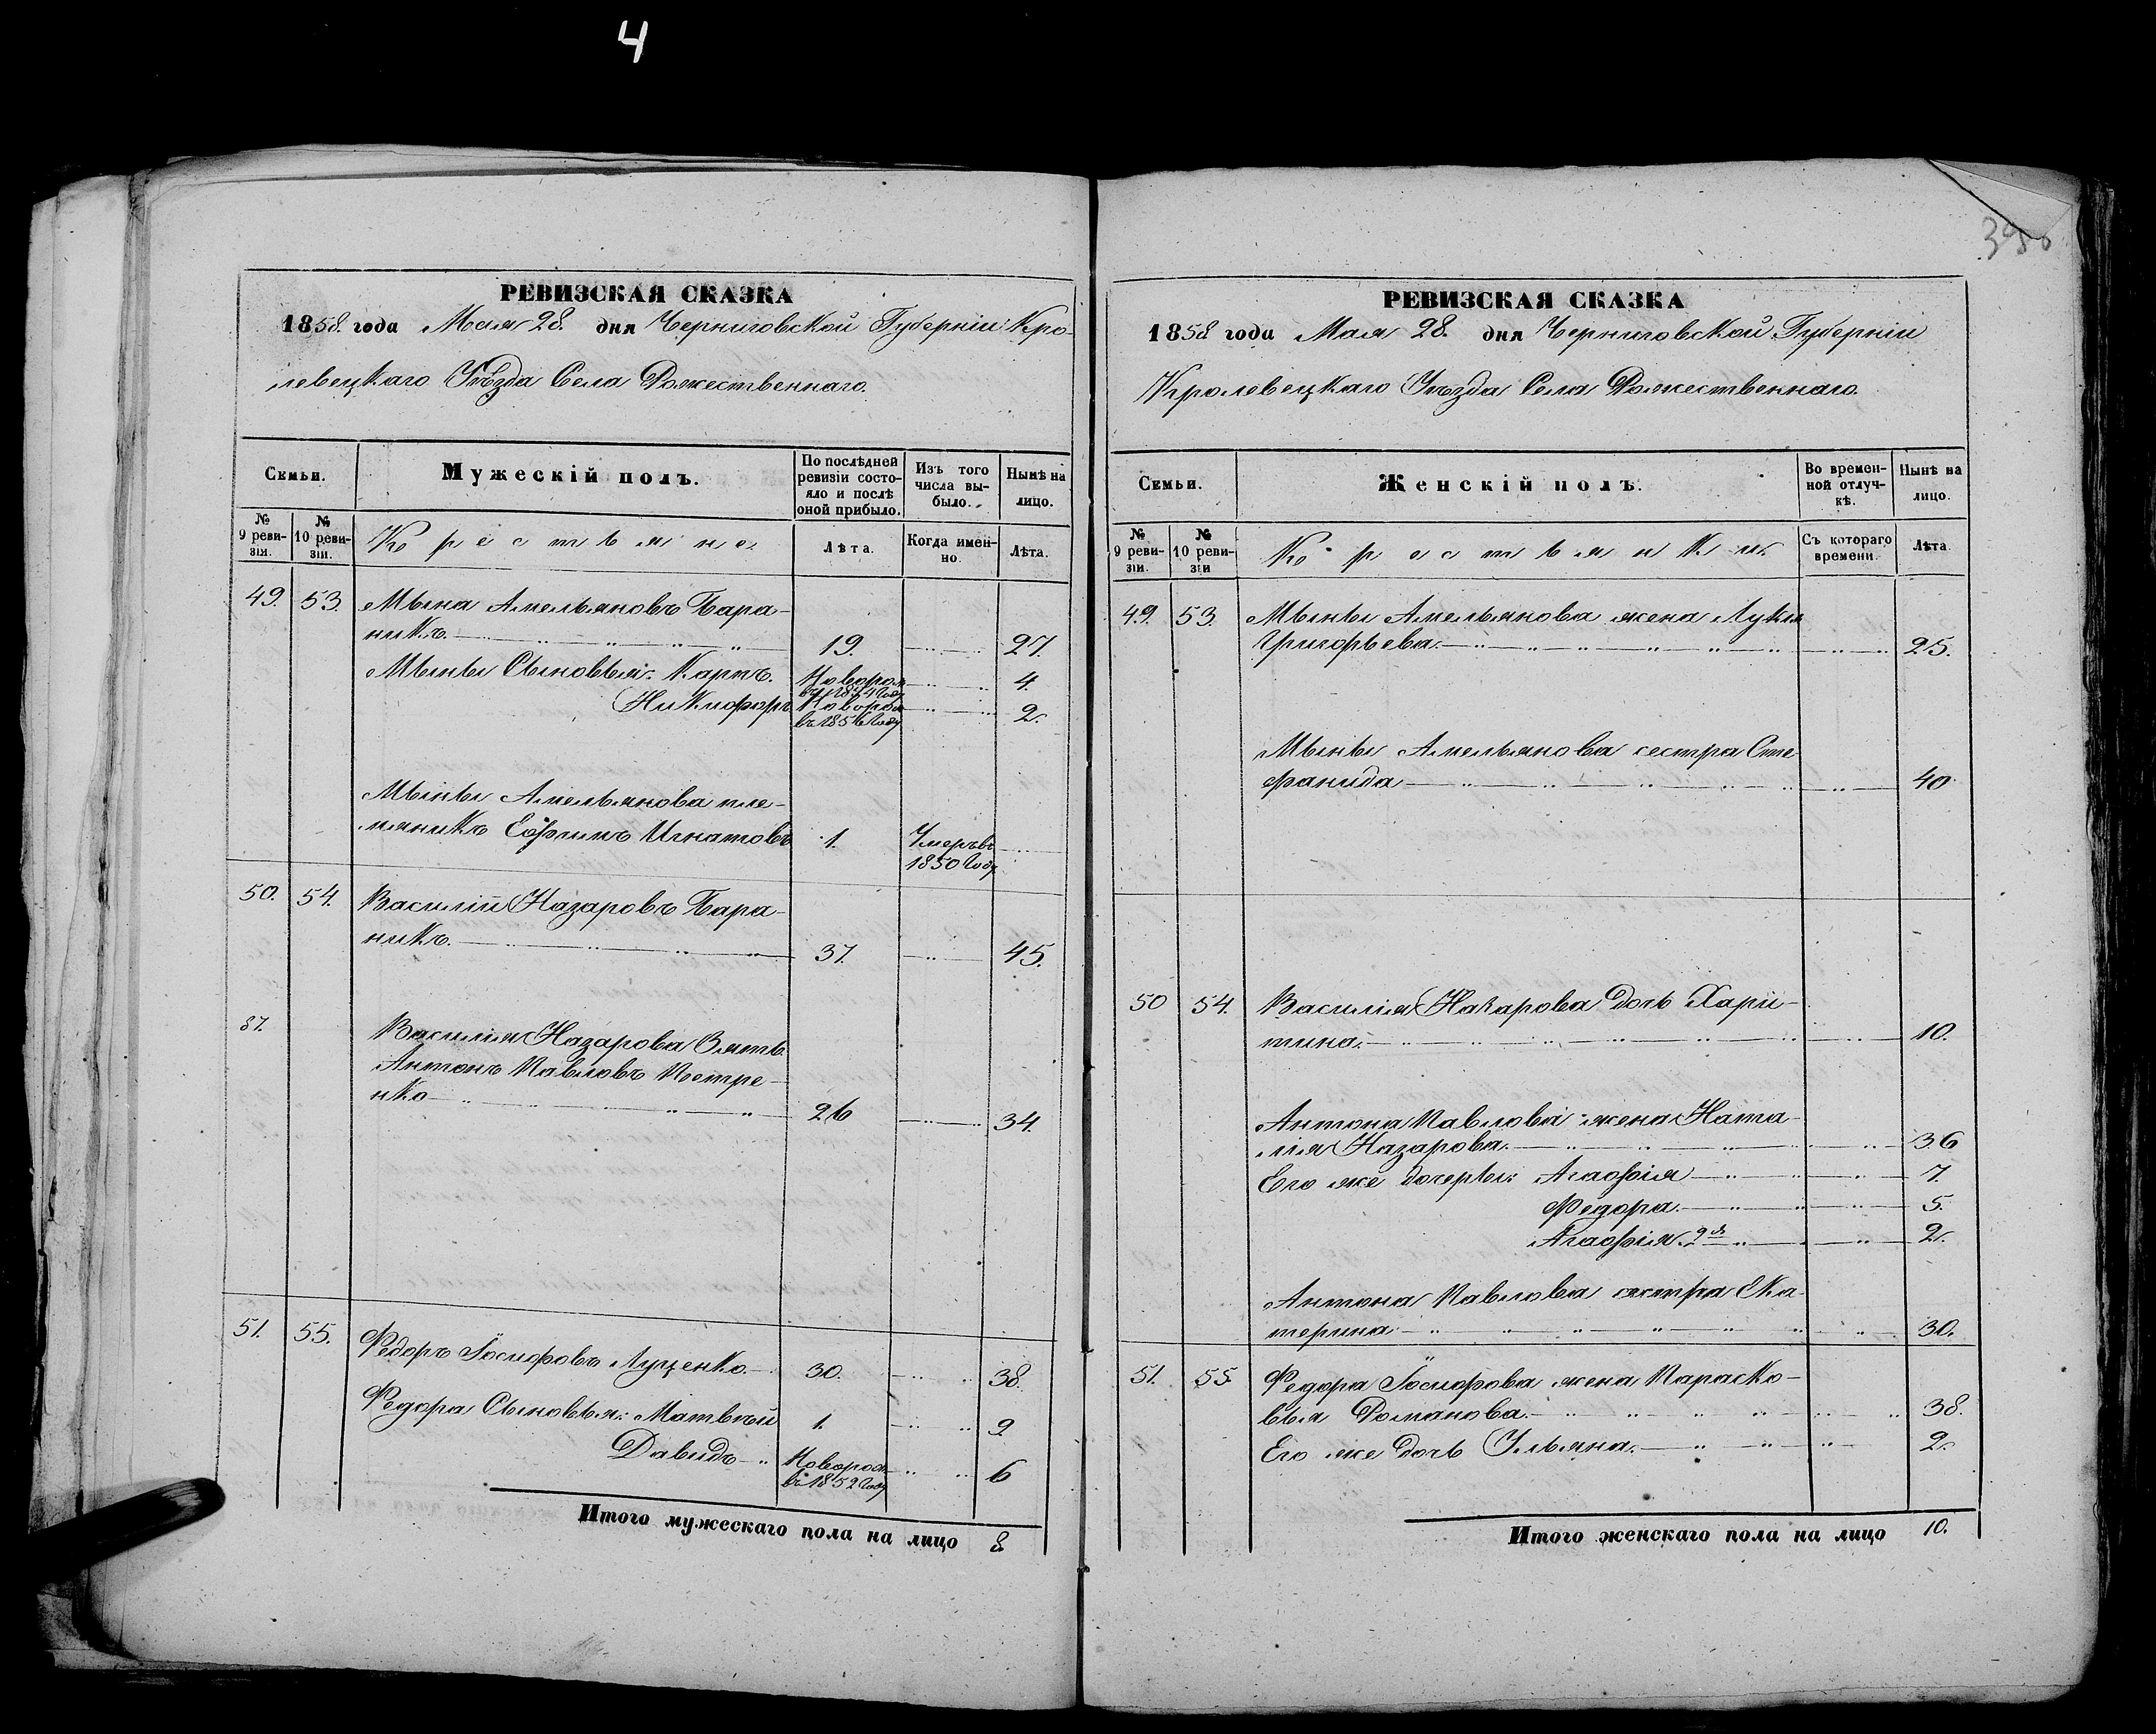 4
РЕВИЗСКАЯ СКАЗКА
1858. года Мая 28. дня Черниговской Губерніи Кро-
левецкаго Уѣзда Села Рожественнаго.
Семьи.
Мужескій полъ.
По послѣдней ревизіи состояло и послѣ оной прибыло.
Изъ того числа выбыло.
Нынѣ на лицо.
№ 9 ревизіи.
№ 10 ревизіи.
Крестьяне
Лѣта.
Когда именно.
Лѣта.
49. 53. Мына Амельяновъ Бара-
никъ. 19. 27.
Мыны Сыновья: Карпъ.Новорож 4.
въ 1854 году
Никифоръ Новорож 2.
въ 1856 году
Мыны Амельянова пле-
мяникъ Ефимъ Игнатовъ 1. Умеръ въ
1850 году
50. 54. Василій Назаровъ Бара-
никъ. 37. 45.
87. Василія Назарова Зять
Антонъ Павловъ Петре-
нко 26 34.
51. 55. Федоръ Іосифовъ Луценко. 30. 38.
Федора Сыновья: Матвѣй 1. 9.
Давидъ Новорож 6
въ 1852 году
Итого мужескаго пола на лицо 8.
РЕВИЗСКАЯ СКАЗКА
1858 года Мая 28. дня Черниговской Губерніи
Кролевецкаго Уѣзда Села Рожественнаго.
Семьи.
Женскій полъ.
Во временной отлучкѣ.
Нынѣ на лицо.
№ 9 ревизіи.
№ 10 ревизіи
Крестьянки.
Съ котораго времени.
Лѣта.
49. 53. Мыны Амельянова жена Лукія
Григорьева. 25.
Мыны Амельянова сестра Сте-
фанида 40
50 54. Василія Назарова дочь Хари-
тина. 10.
Антона Павлова жена Ната-
лія Назарова. 36
Его же дочери: Агафія 7.
Федора. 5.
Агафія 2я 2.
Антона Павлова сестра Ека-
терина 30.
51. 55. Федора Іосифова жена Параско-
вья Романова. 38.
Его же дочь Ульяна. 2.
Итого женскаго пола на лицо 10.